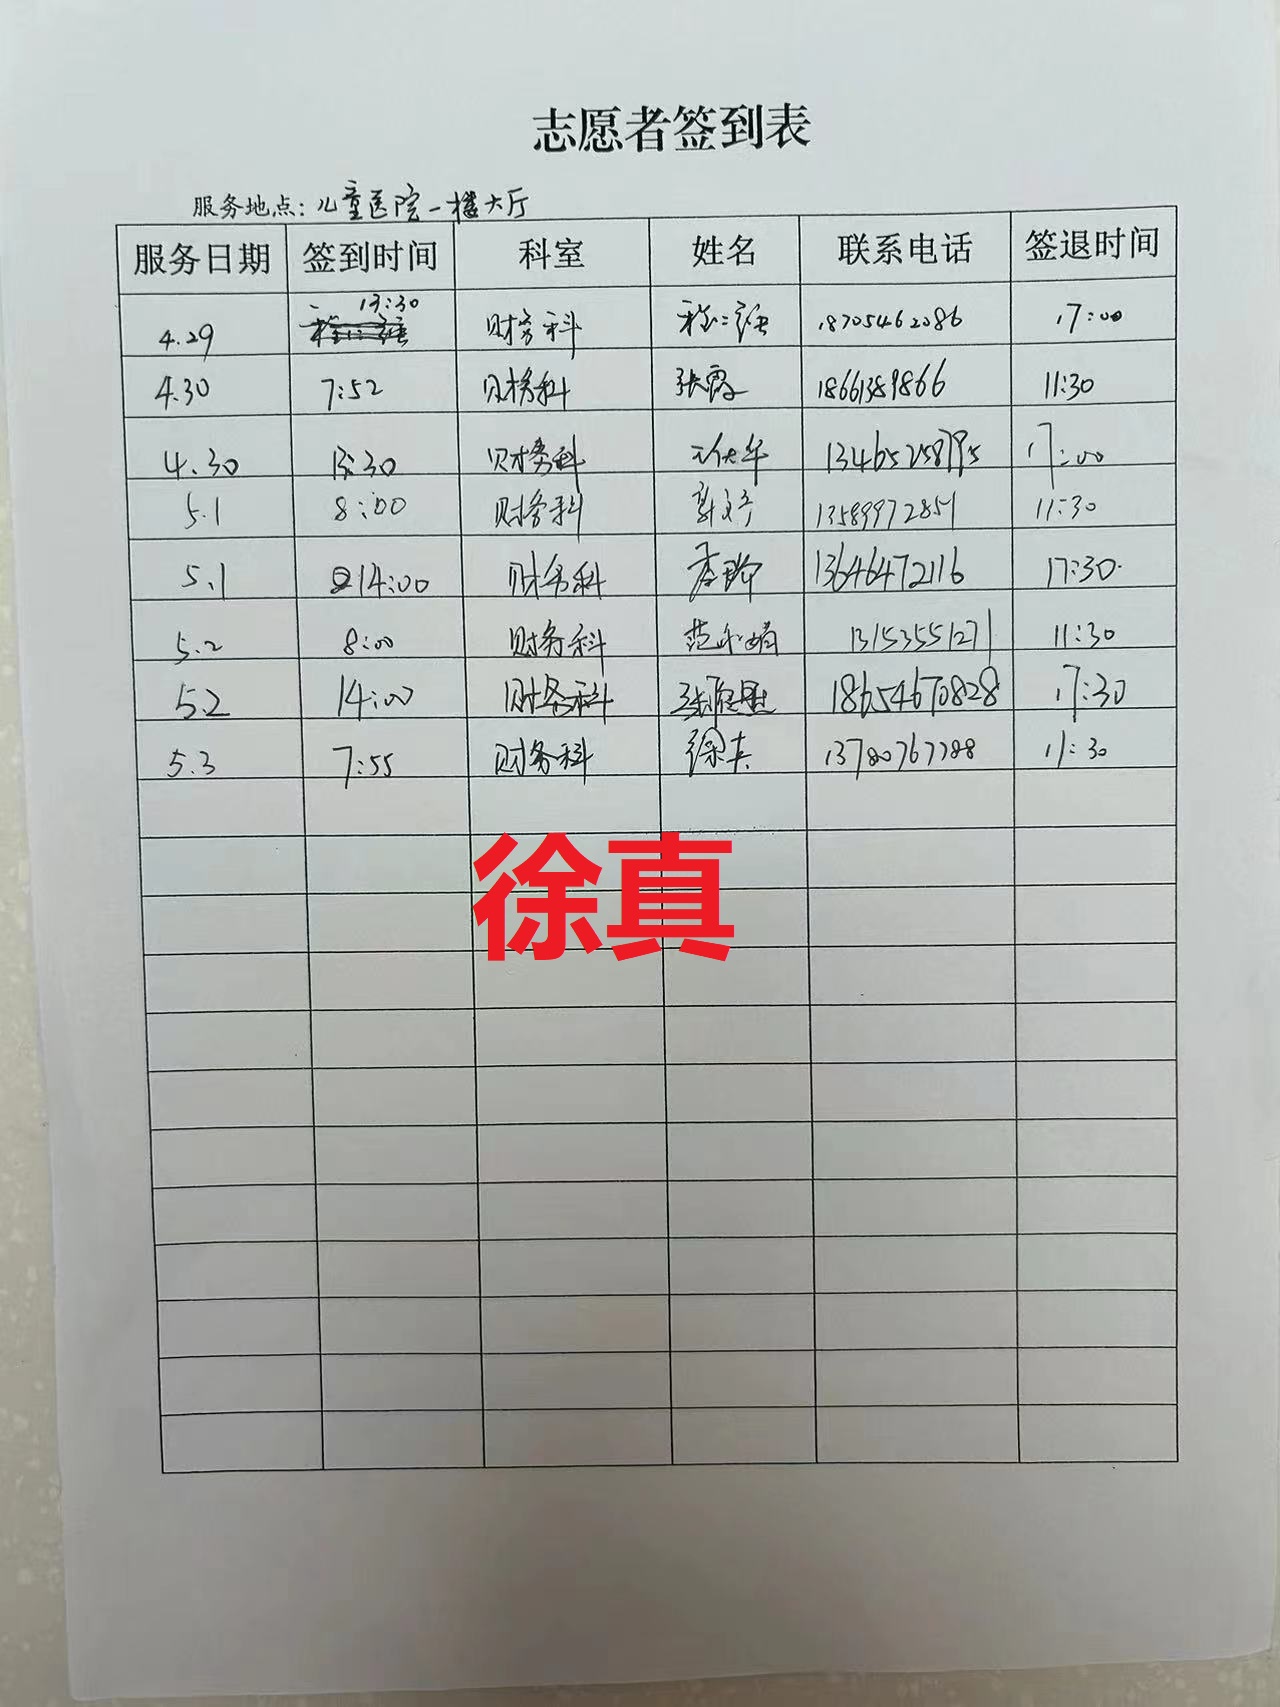 志愿者签到表
服务地点：儿童医院一楼大厅
服务日期 签到时间 科室 姓名 联系电话 签退时间
4.29 13:30 财务科 18705462086 17:00
4.30 7:52 财务科 张霞 18661389866 11:30
4.30 13:30 财务科 17:00
5.1 8:00 财务科 13589972851 11:30
5.1 14:00 财务科 13646472116 17:30
5.2 8:00 财务科 13153551271 11:30
5.2 14:00 财务科 18654670828 17:30
5.3 7:55 财务科 徐真 13780767788 11:30
徐真